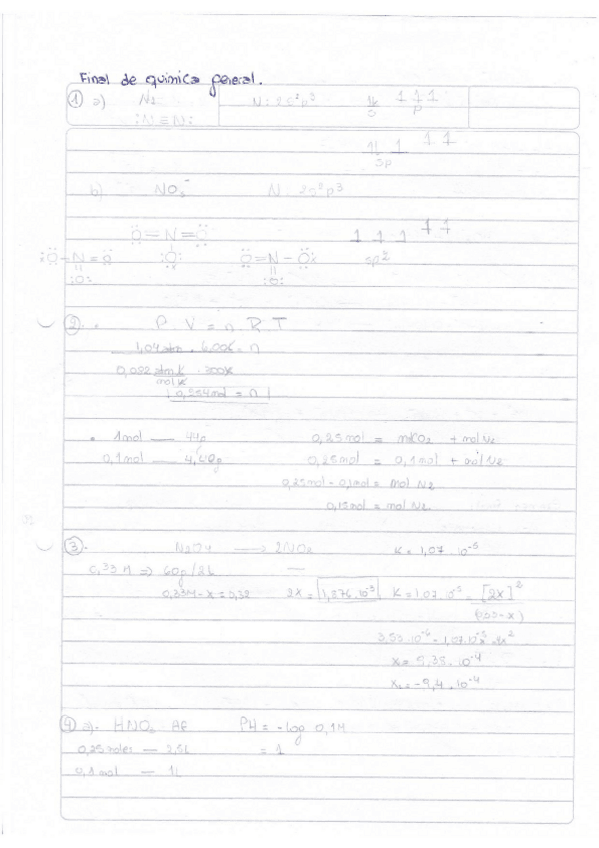 Final de quimica general.
① a) N₂ N: 2s²p³ s p
:N≡N:
sp
b) NO₃⁻ N: 2s²p³
:Ö=N=Ö:
:Ö-N=Ö :Ö: Ö=N-Ö: sp²
:O: :O:
② • P. V = n. R. T
1,04 atm . 6,00L = n
0,082 atm L . 300K
mol K
0,254 mol = n
• 1 mol — 44g 0,25mol = molCO₂ + mol N₂
0,1 mol — 4,40g 0,25mol = 0,1mol + mol N₂
0,25mol - 0,1mol = mol N₂
0,15mol = mol N₂.
③- N₂O₄ → 2NO₂ K = 1,07 . 10⁻⁵
0,33 M => 60g/2L —
0,334 - x = 0,32 2x = 1,876.10⁻³ K = 1,07.10⁻⁵ = [2x]²
x = 9,38.10⁻⁴
x₂ = -9,4.10⁻⁴
④ a)- HNO₃ AF PH = -log 0,1M
0,25 moles — 2,5L = 1
0,1 mol — 1L